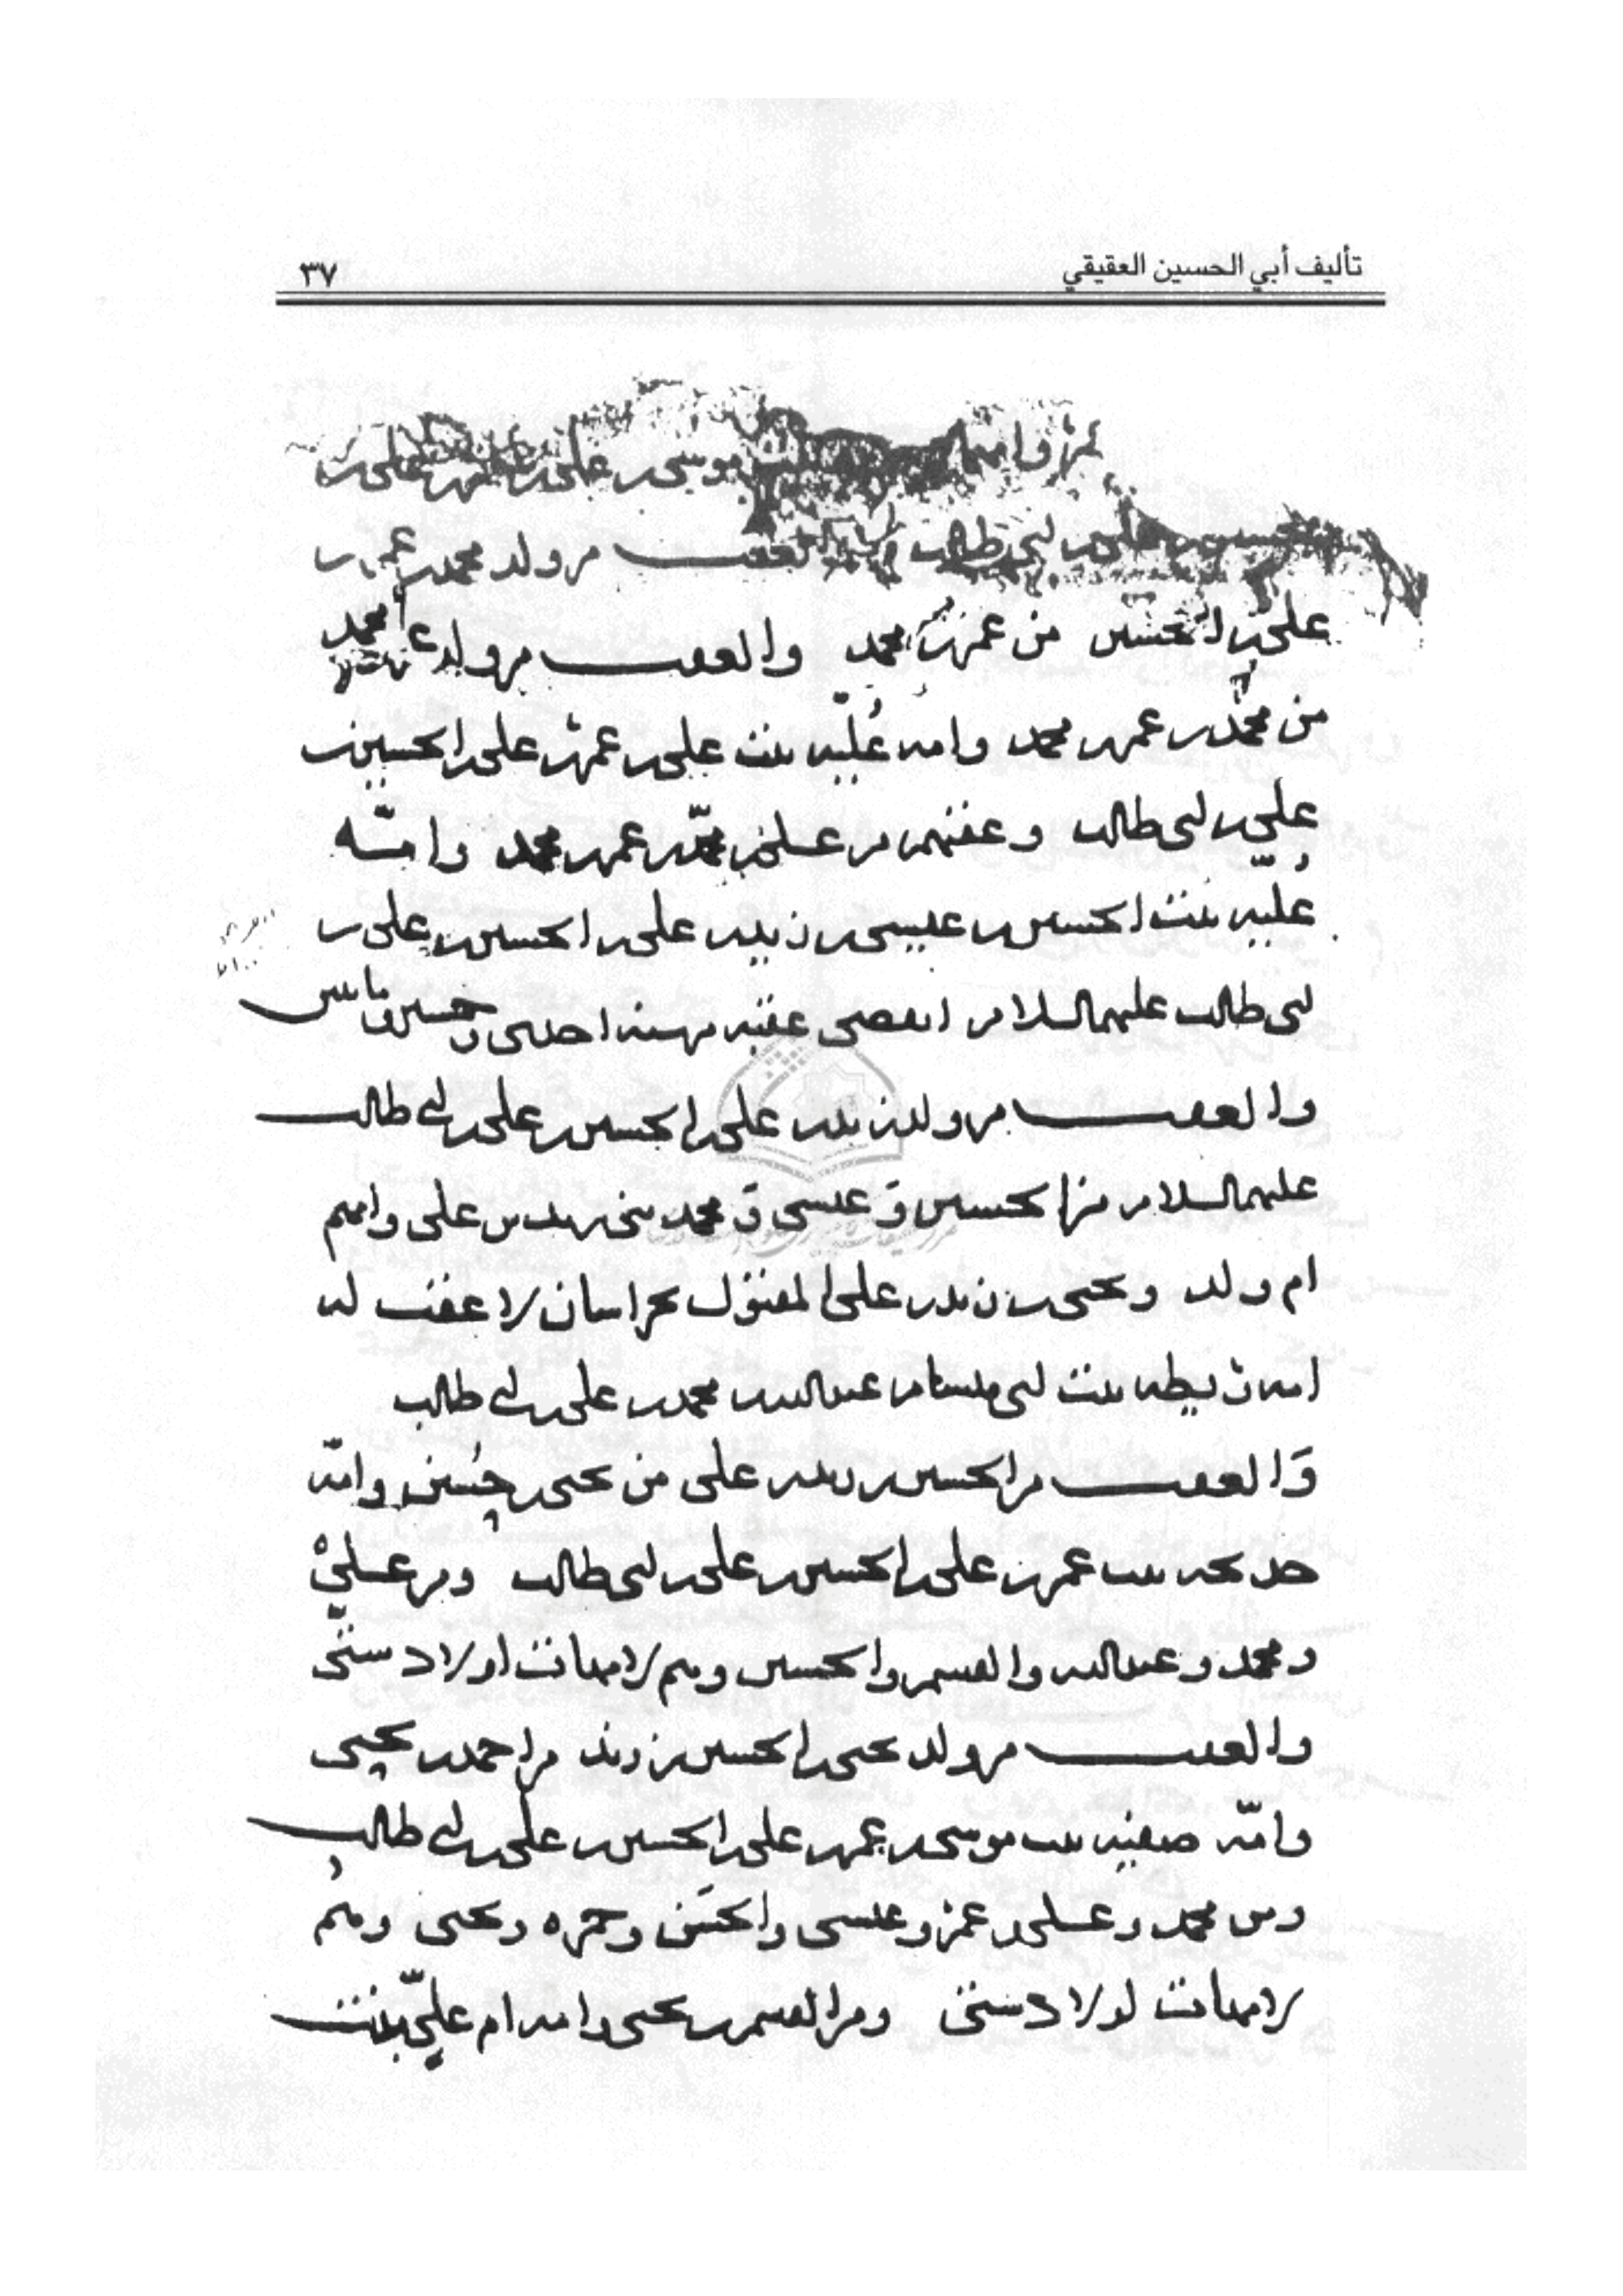 تأليف أبي الحسين العقيقي
٣٧
عمر وامهما موسى بن علي بن علي بن
الحسين بن علي بن ابي طالب والعقب من ولد محمد بن عمر بن
علي بن الحسين من عمر بن محمد والعقب من ولد عمر بن محمد
من محمد بن عمر بن محمد وامه عُليّه بنت علي بن عمر بن علي بن الحسين بن
علي بن ابي طالب وعقبهم من علي بن محمّد بن عمر بن محمد وامّه
عُليّه بنت الحسين بن عيسى بن زيد بن علي بن الحسين بن علي بن
ابي طالب عليهم السلام انقضى عقبه في سنه احدى وخمسين ومايتين
والعقب من ولد زيد بن علي بن الحسين بن علي بن ابي طالب
عليهم السلام من الحسين وَعيسى وَ محمد بني زيد بن علي وامهم
ام ولد ويحيى بن زيد بن علي المقتول بخراسان لا عقب له
امه ريطه بنت ابي هاشم عبد الله بن محمد بن علي بن ابي طالب
وَالعقب من الحسين بن زيد بن علي من يحيى بن حُسين وامّه
خديجه بنت عمر بن علي بن الحسين بن علي بن ابي طالب ومن علي
ومحمد وعبد الله والقسم والحسين وهم لامهات اولاد شتّى
والعقب من ولد يحيى بن الحسين بن زيد من احمد بن يحيى
وامّه صفيه بنت موسى بن عمر بن علي بن الحسين بن علي بن ابي طالب
ومن محمد وعلي وعمر وعيسى والحسَن وحمزه ويحيى وهم
لامهات اولاد شتى ومن القسم بن يحيى وامه ام عليّ بنت